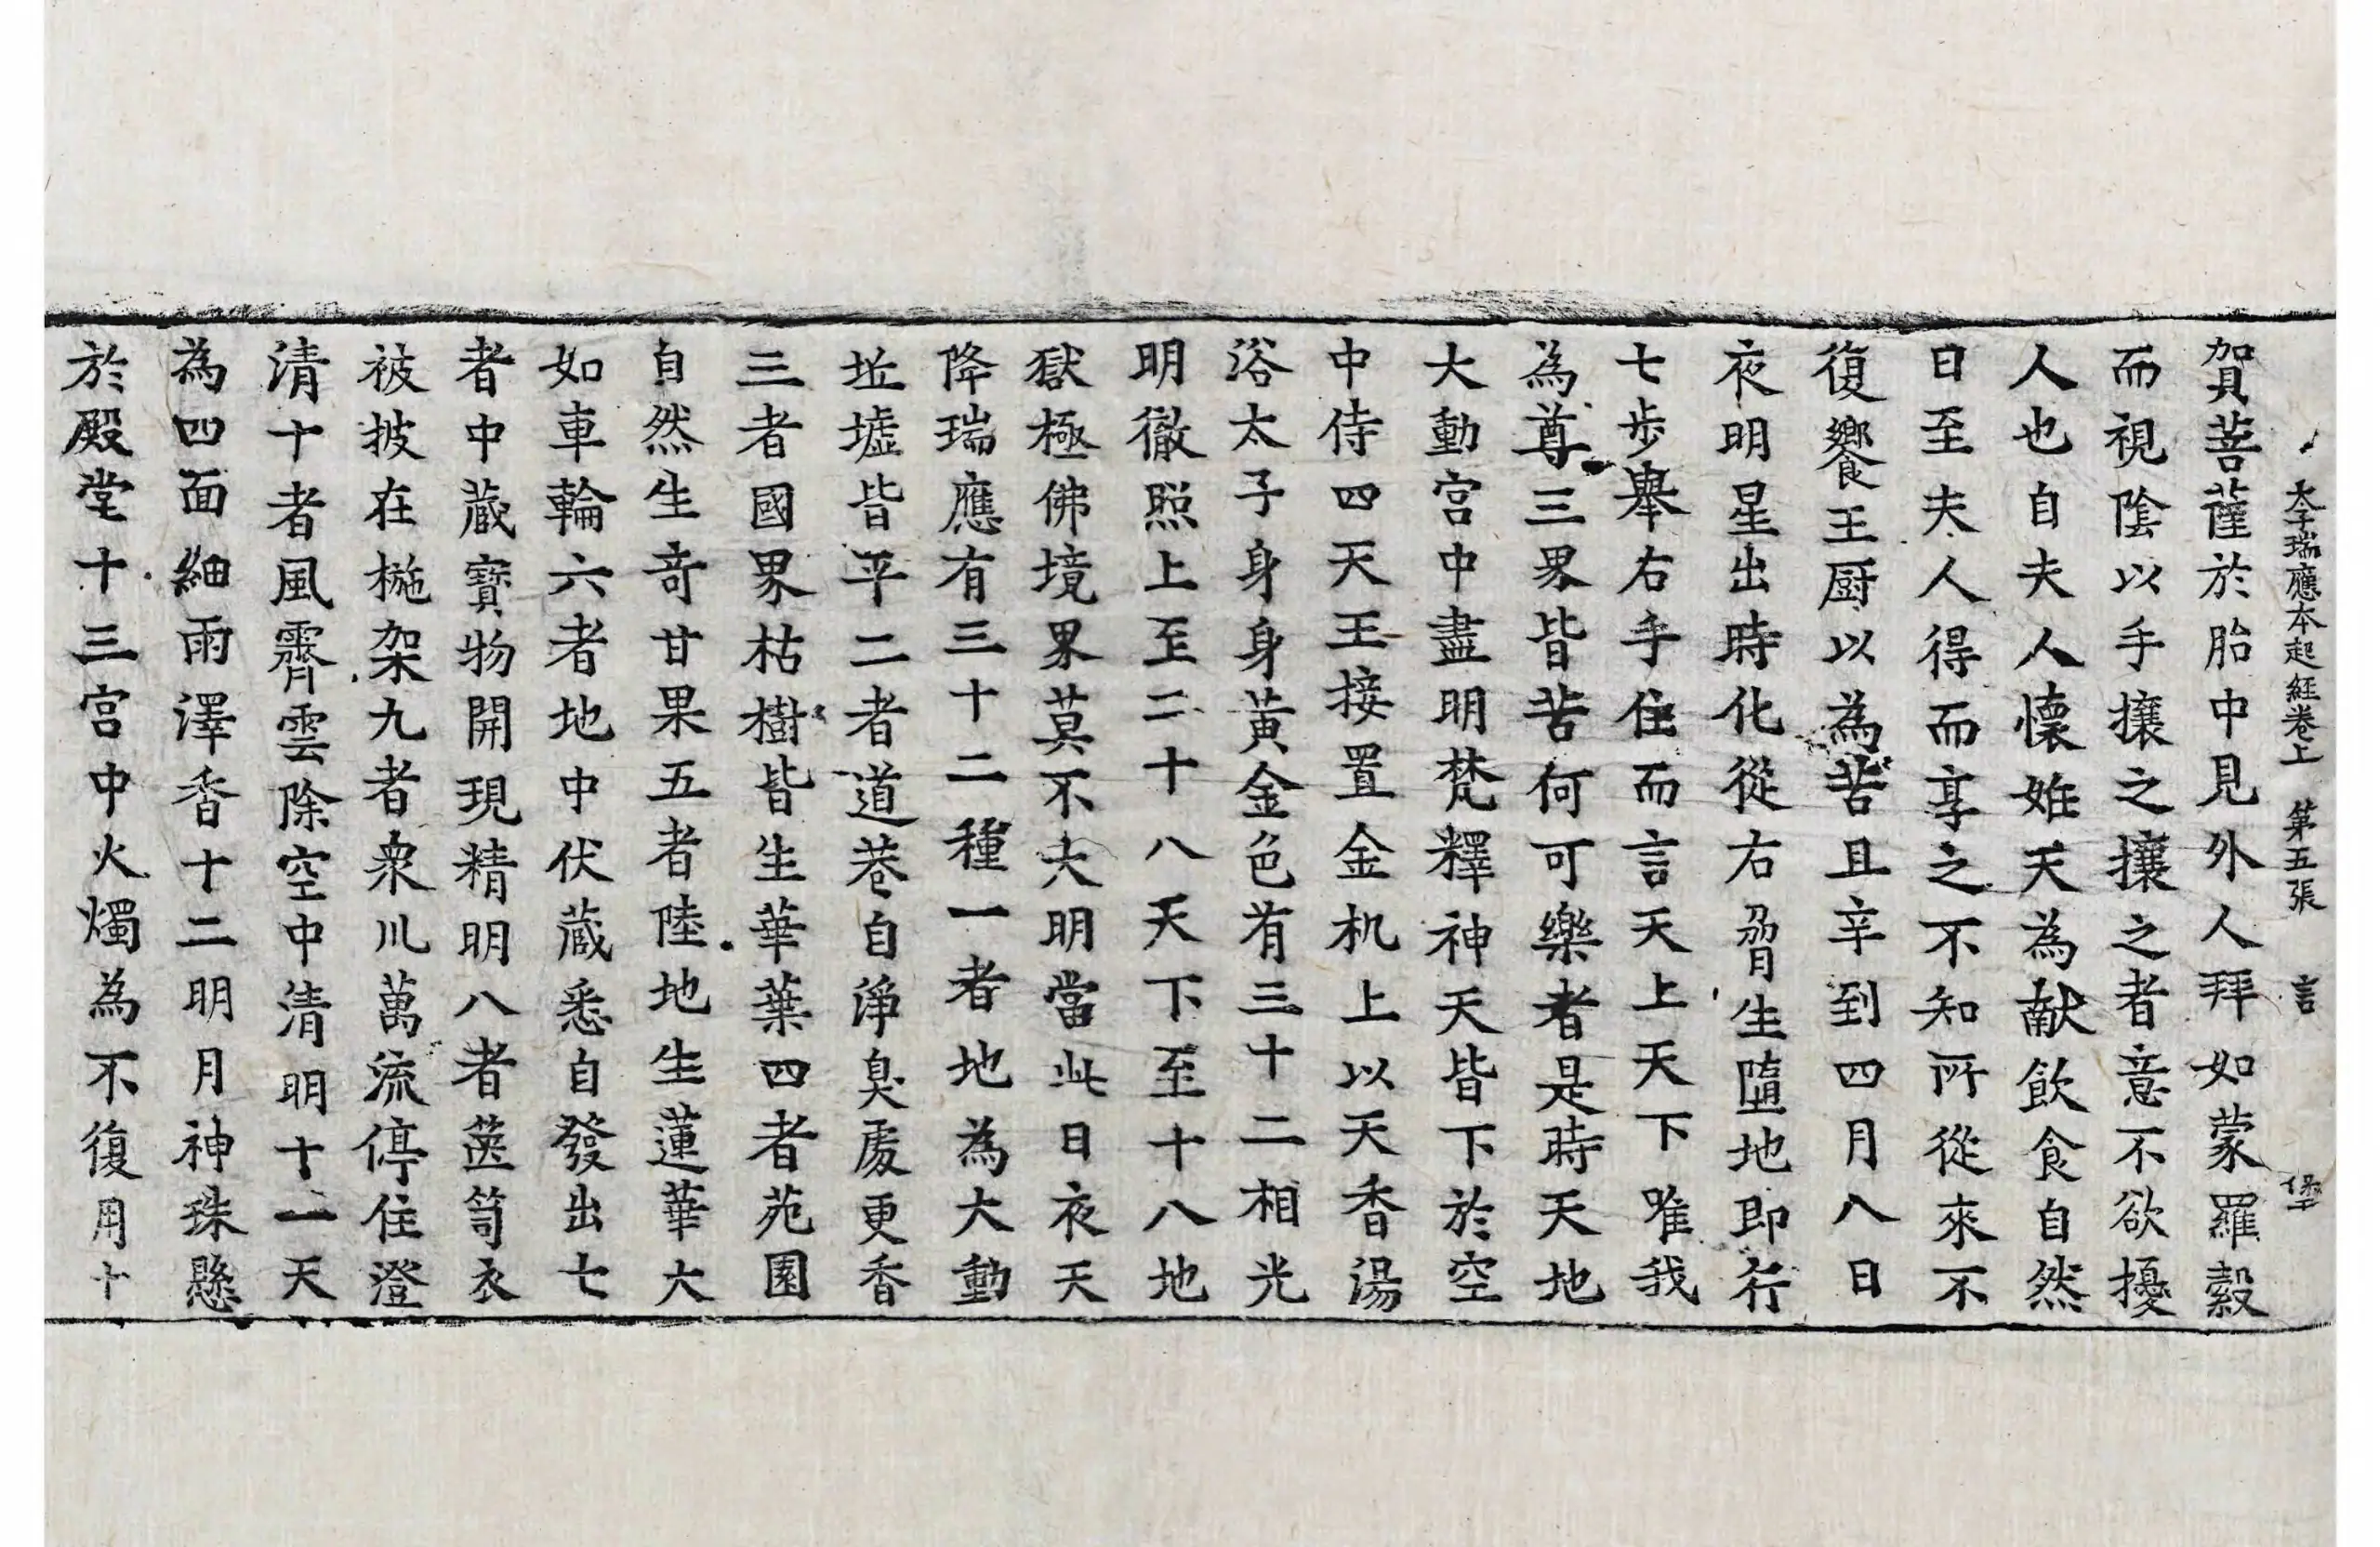 太子瑞應本起經卷上 第五張 言
賀菩薩於胎中見外人拜如蒙羅縠
而視陰以手攘之攘之者意不欲擾
人也自夫人懷妊天為献飲食自然
日至夫人得而享之不知所從來不
復饗王厨以為苦且辛到四月八日
夜明星出時化從右脅生墮地即行
七步舉右手住而言天上天下唯我
為尊三界皆苦何可樂者是時天地
大動宮中盡明梵釋神天皆下於空
中侍四天王接置金机上以天香湯
浴太子身身黃金色有三十二相光
明徹照上至二十八天下至十八地
獄極佛境界莫不大明當此日夜天
降瑞應有三十二種一者地為大動
坵墟皆平二者道巷自淨臭處更香
三者國界枯樹皆生華葉四者苑園
自然生奇甘果五者陸地生蓮華大
如車輪六者地中伏藏悉自發出七
者中藏寶物開現精明八者篋笥衣
被披在椸架九者衆川萬流停住澄
清十者風霽雲除空中清明十一天
為四面細雨澤香十二明月神珠懸
於殿堂十三宮中火燭為不復用十